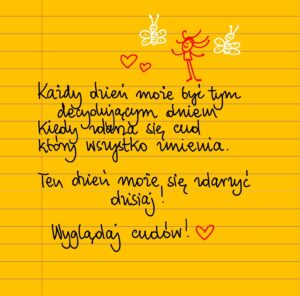 Każdy dzień może być tym
decydującym dniem
Kiedy zdarza się cud
który wszystko zmienia.
Ten dzień może się zdarzyć
dzisiaj!
Wyglądaj cudów!